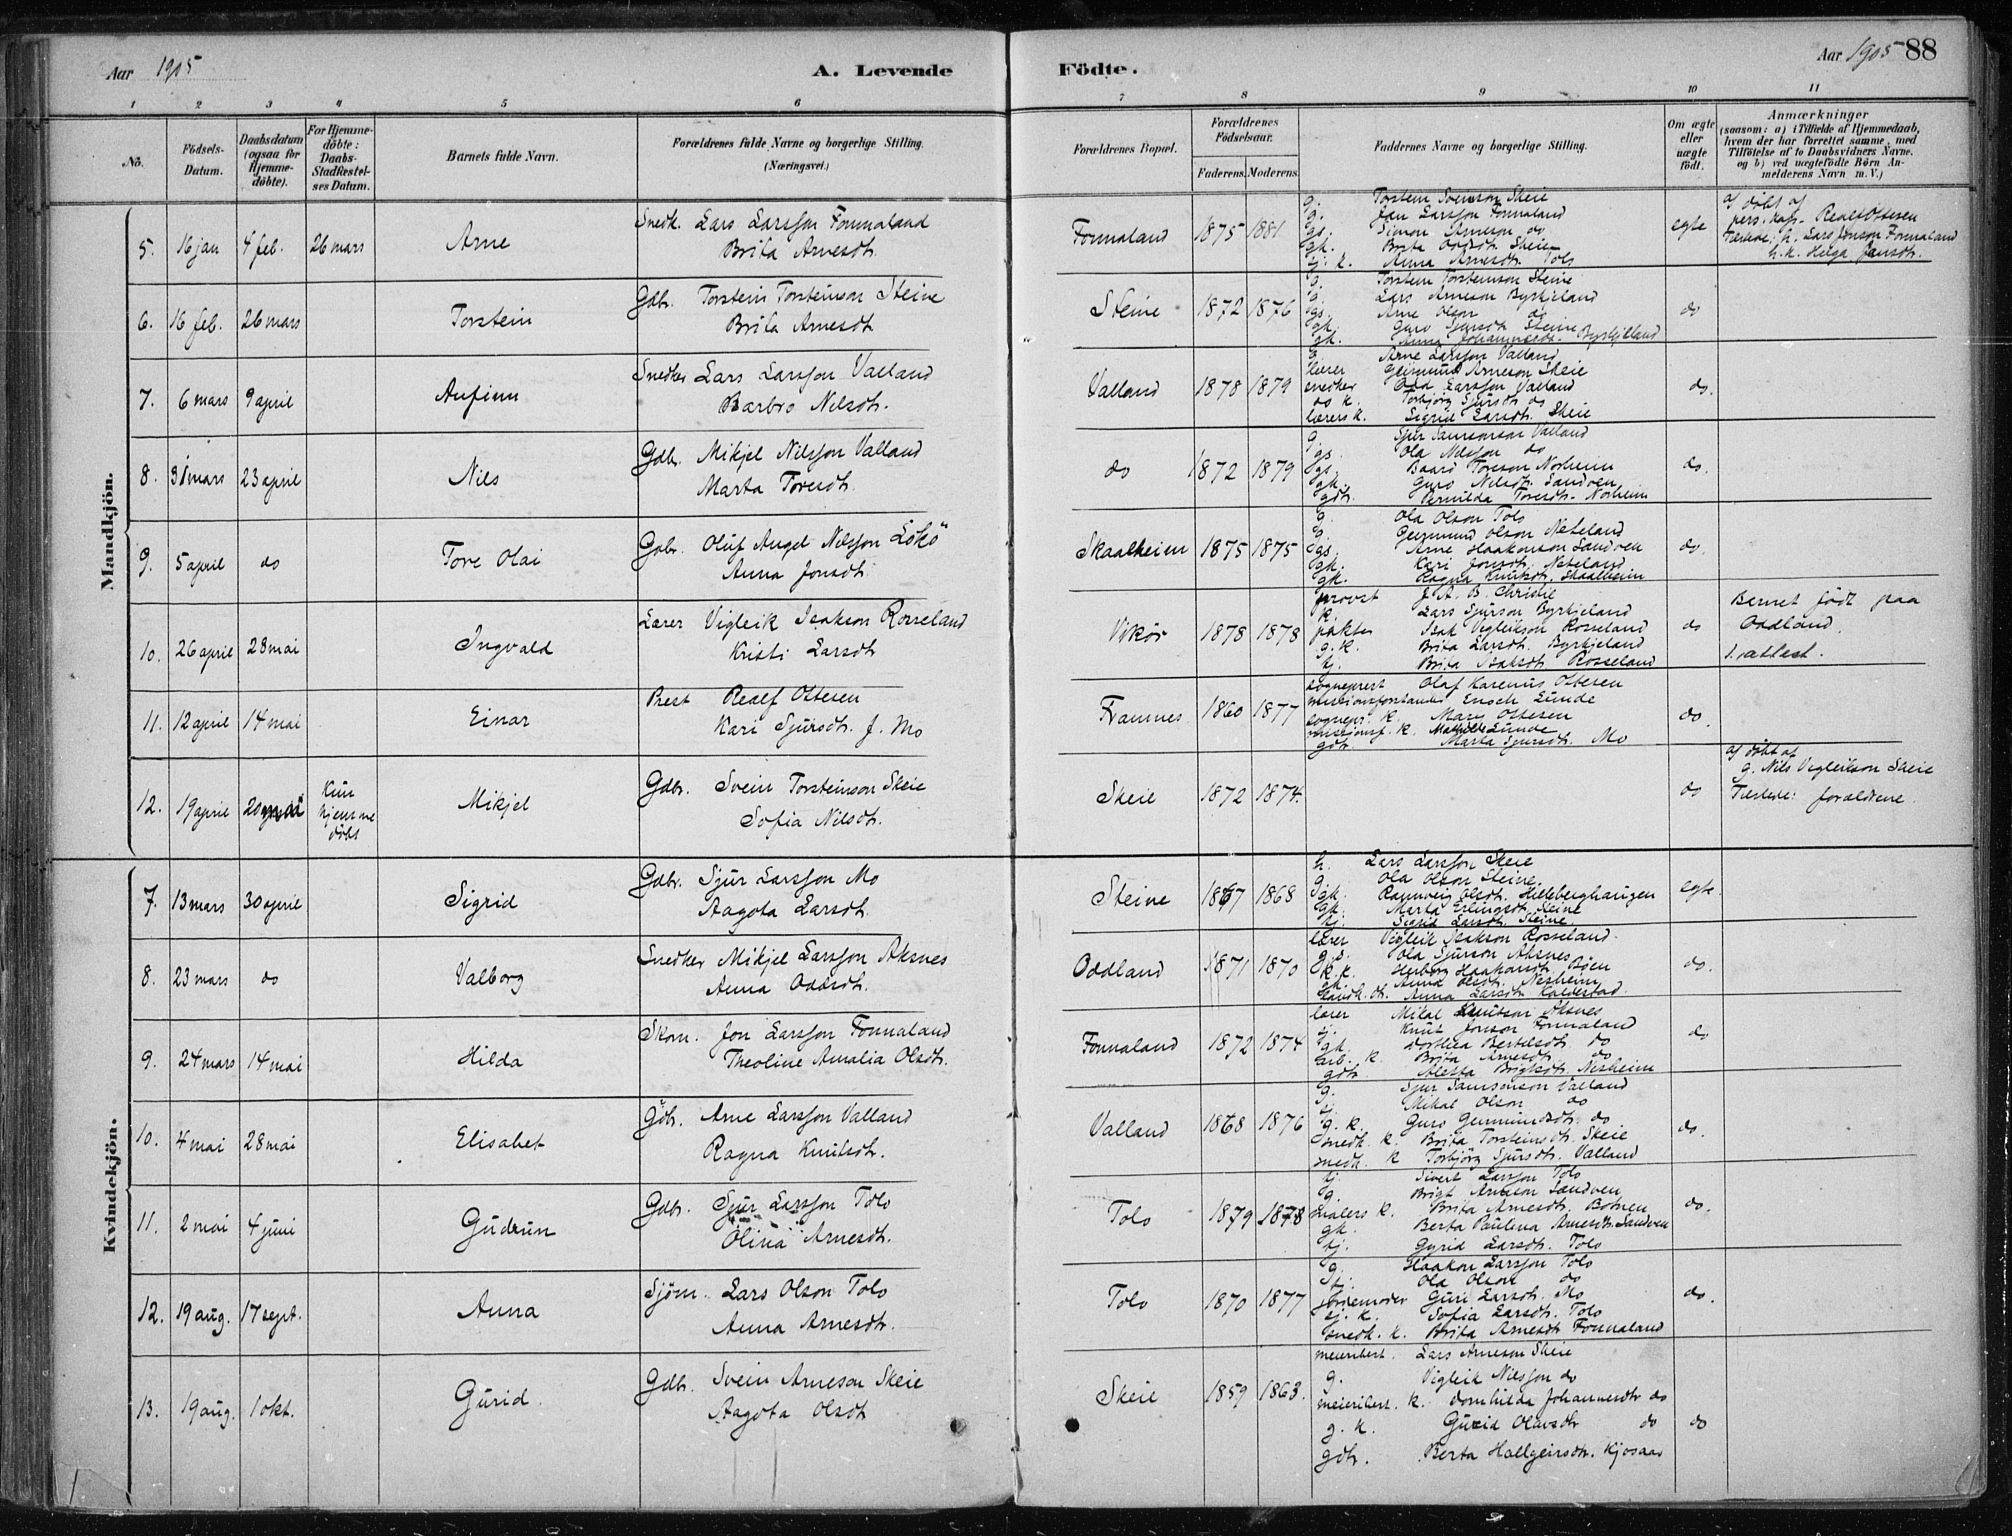 Aar 1905
A. Levende
Födte.
Aar 1905 88
1 2 3 4 5 6 7 8 9 10 11
No.
Födsels-Datum.
Daabsdatum (ogsaa for Hjemme-döbte).
For Hjemme-döbte: Daabs-Stadfæstel-ses Datum.
Barnets fulde Navn.
Forældrenes fulde Navne og borgerlige Stilling.
(Næringsvei.)
Forældrenes Bopæl.
Forældrenes Födselsaar.
Faderens. Moderens.
Faddernes Navne og borgerlige Stilling.
Om ægte eller uægte födt.
Anmærkninger
(saasom: a) i Tilfælde af Hjemmedaab, hvem der har forrettet samme, med Tilföielse af to Daabsvidners Navne. og b) ved uægtefödte Börn An-melderens Navn m. V.)
Mandkjön.
5. 16 jan 4 feb. 26 mars Arne Snedk. Lars Larsson Fonnaland
Brita Arnesdtr.
Fonnaland 1875 1881
g. Torstein Sveinson Skeie
g. Jon Larsson Fonnaland
gs. Simon Arneson do
gk. Brita Oddsdtr. Skeie
tj. k. Anna Arnesdtr. Tolo
egte
a) döbt af
pers. kap. Realf Ottesen
Tilstede: h. Lars Jonson Fonnaland
h. k. Helga Jonsdtr.
6. 16 feb. 26 mars Torstein Gdbr. Torstein Torsteinson Steine
Brita Arnesdtr
Steine 1872 1876
g. Torstein Torsteinson Steine
g. Lars Arneson Byrkjeland
gs. Arne Olson do
gk. Guro Sjursdtr Steine
gk. Anna Johannesdtr. Byrkjeland
do
7. 6 mars 9 april Anfinn Snedker Lars Larsson Valland
Barbro Nilsdtr.
Valland 1878 1879
g. Arne Larsson Valland
lærer Geirmund Arneson Skeie
snedker Odd Larsson Valland
do k. Torbjörg Sjursdtr do
lærers k. Sigrid Larsdtr. Skeie
do.
8. 31 mars 23 april Nils Gdbr. Mikjel Nilsson Valland
Marta Toresdtr.
do 1872 1879
g. Sjur Samsonson Valland
gs. Ola Nilsson do
gs. Baard Toreson Norheim
gk. Guro Nilsdtr. Sandven
gdtr. Pernilda Toresdtr. Norheim
do.
9. 5 april do Tore Olai Gdbr. Oluf Angel Nilsson Lökö
Anna Jonsdtr.
Skaalheim 1875 1875
g. Ola Olson Tolo
g. Geirmund Olson Neteland
gs. Arne Haakonson Sandven
gk. Kari Jonsdtr. Neteland
gk. Ragna Knutsdtr. Skaalheim
do.
10. 26 april 28 mai Ingvald Lærer Vigleik Isakson Rosseland
Kristi Larsdtr
Vikör 1878 1878
provst J. A. B. Christie
k. Lars Sjurson Byrkjeland
Isak Vigleikson Rosseland
g. k. Brita Larsdtr. Byrkjeland
tj. Brita Isaksdtr. Rosseland
do
Barnet födt paa
Oddland.
11. 12 april 14 mai Einar Prest Realf Ottesen
Kari Sjursdtr. f. Mo
Framnes 1860 1877
sogneprest Olaf Karenus Ottesen
missionsforstander Enoch Lunde
sognepr. k. Mary Ottesen
missionsf. k. Mathilde Lunde
gdtr Marta Sjursdtr. Mo
do.
12. 19 april 20 mai Kun hjemme döbt Mikjel Gdbr. Svein Torsteinson Skeie
Sofia Nilsdtr.
Skeie 1872 1874.
do
a) döbt af
g. Nils Vigleikson Skeie
Tilstede: foræeldrene.
Kvindekjön.
7. 13 mars 30 april Sigrid Gdbr. Sjur Larsson Mo
Aagota Larsdtr.
Steine 1867 1868
h. Lars Larsson Skeie
g. Ola Olson Steine
gk. Rannveig Olsdtr. Hilleberghaugen
gk. Marta Erlingsdtr. Steine
tj. Sigrid Larsdtr. Steine
egte.
8. 23 mars do Valborg Snedker Mikjel Larsson Aksnes
Anna Oddsdtr.
Oddland 1871 1870
lærer Vigleik Isakson Rosseland
gs. Ola Sjurson Aksnes
k. k. Herborg Haakonsdtr. Bøen
gk. Anna Olsdtr. Nesheim
landh. dt. Anna Larsdtr. Kaldestad
do.
9. 24 mars 14 mai Hilda Skom. Jon Larsson Fonnaland
Theoline Amalia Olsdtr.
Fonnaland 1872 1874
lærer Mikal Knutson Aksnes
tj. Knut Jonson Fonnaland
gk. Dorthea Bertilsdtr. do
arb. k. Brita Arnesdtr. do
gdtr. Aletta Brigtsdtr. Nesheim
do
10. 4 mai 28 mai Elisabet Gdbr. Arne Larsson Valland
Ragna Knutsdtr.
Valland 1868 1876
g. Sjur Samsonson Valland
tj. Mikal Olson do
g. k. Guro Geirmundsdtr. do
snedk. k. Brita Torsteinsdtr. Skeie
snedk. k Torbjörg Sjursdtr. Valland
do.
11. 2 mai 4 juni Gudrun Gdbr. Sjur Larsson Tolo
Olina Arnesdtr.
Tolo 1879 1878
tj. Sivert Larsson Tolo
g. Brigt Arneson Sandven
malers k. Brita Arnesdtr. Botnen
gk. Berta Paulina Arnesdtr. Sandven
tj. Gyrid Larsdtr. Tolo
do.
12. 19 aug. 17 sept. Anna Sjöm. Lars Olson Tolo
Anna Arnesdtr.
Tolo 1870 1877
g. Haakon Larsson Tolo
tj. Ola Olson do
jordemoder Guri Larsdtr. Mo
sj. k. Sofia Larsdtr. Tolo
snedk. k. Brita Arnesdtr Fonnaland
do.
13. 19 aug. 1 okt. Gurid. Gdbr. Svein Arneson Skeie
Aagota Olsdtr
Skeie 1859 1863.
meieribest. Lars Arneson Skeie
g. Vigleik Nilsson do
meieribest. k. Dornhilda Johannesdtr do
g. k. Gurid Olavsdtr do
gdtr. Berta Hallgeirsdtr. Kjosaas
do